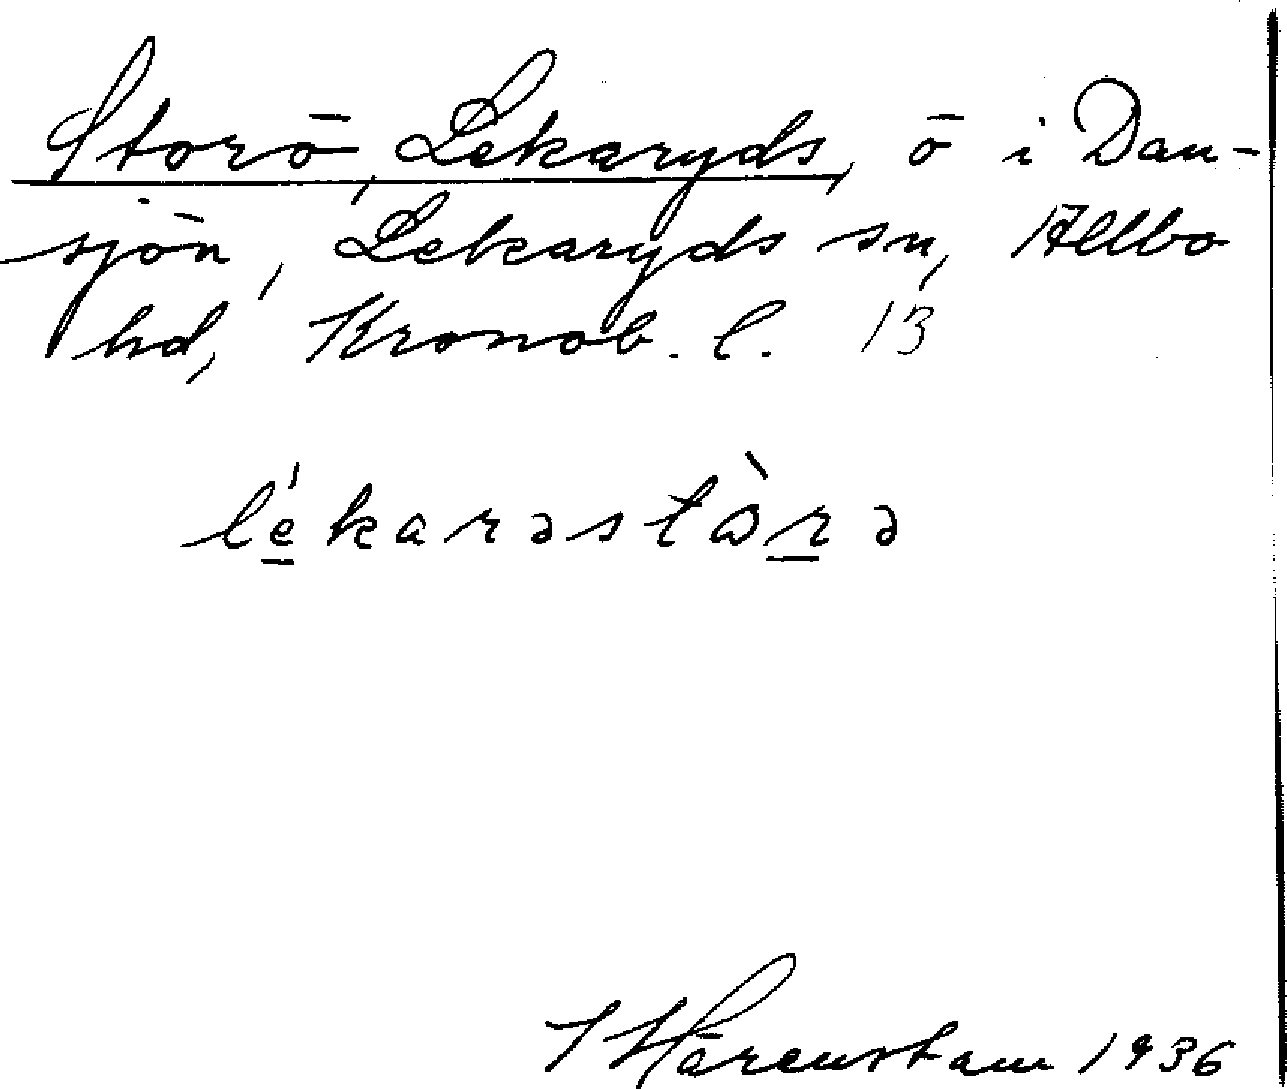 Storö, Lekaryds, ö i Dan-
sjön, Lekaryds sn, Allbo
hd, Kronob. l. 13
lékarəstòrə
Härenstam 1936